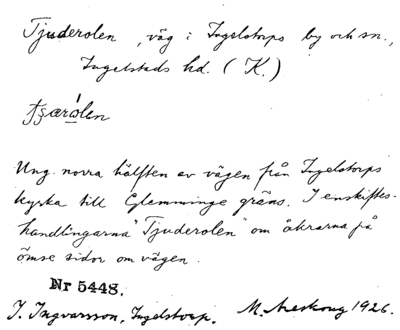 Tjuderolen, väg i Ingelstorps by och sn.,
Ingelstads hd. (K.)
Ung. norra hälften av vägen från Ingelstorps
kyrka till Glemminge gräns. I enskiftes-
handlingarna "Tjuderolen" om åkrarna på
ömse sidor om vägen.
Nr 5448.
I. Ingvarsson, Ingelstorp. M. Areskoug 1926.